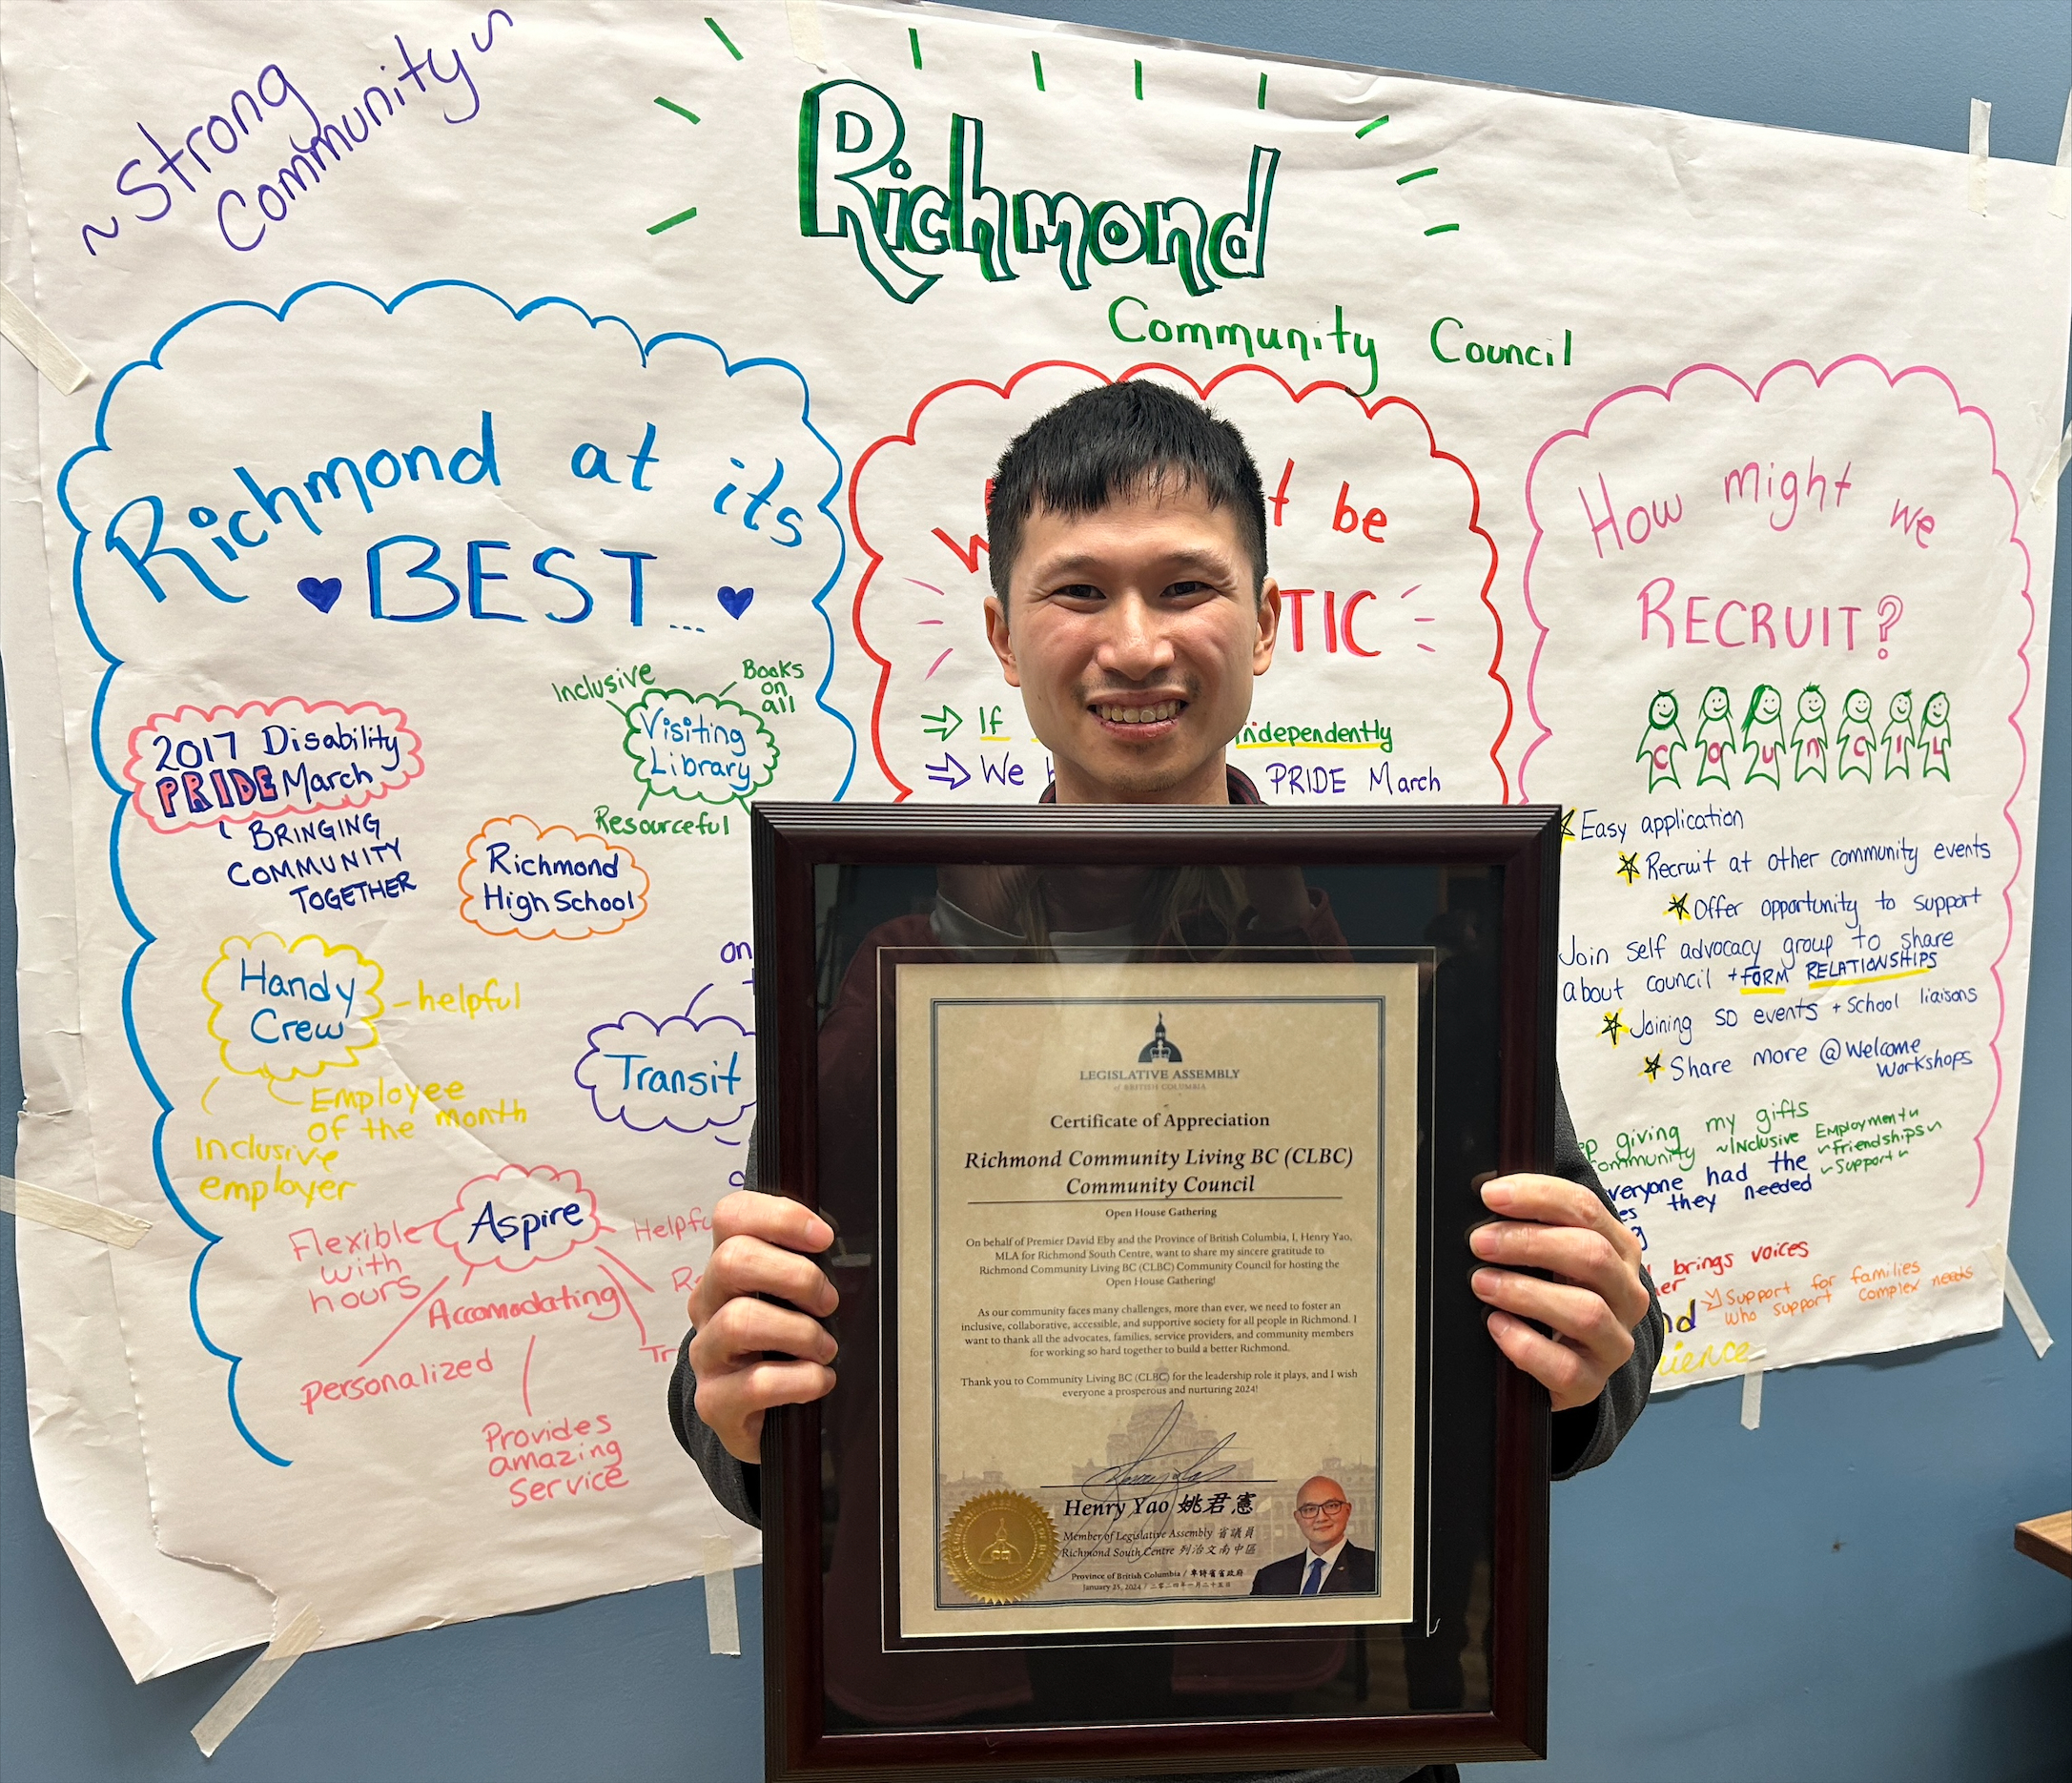 ~Strong
Community~
Richmond
Community Council
Richmond at its
BEST...
2017 Disability
PRIDE March
BRINGING
COMMUNITY
TOGETHER
Inclusive
Books
on
all
Visiting
Library
Resourceful
Richmond
High School
Handy
Crew
-helpful
Employee
of the month
Inclusive
employer
on
Transit
Aspire
Flexible
with
hours
Accomodating
personalized
Provides
amazing
Service
be
TIC
If independently
We PRIDE March
How might we
RECRUIT?
COUNCIL
Easy application
Recruit at other community events
Offer opportunity to support
Join self advocacy group to share
about council + FORM RELATIONSHIPS
Joining SD events + School liaisons
Share more @ Welcome
Workshops
giving my gifts
~Inclusive Employment~
~Friendships~
~Support~
had the
they needed
brings voices
Support for families
who support complex needs
LEGISLATIVE ASSEMBLY
of BRITISH COLUMBIA
Certificate of Appreciation
Richmond Community Living BC (CLBC)
Community Council
Open House Gathering
On behalf of Premier David Eby and the Province of British Columbia, I, Henry Yao,
MLA for Richmond South Centre, want to share my sincere gratitude to
Richmond Community Living BC (CLBC) Community Council for hosting the
Open House Gathering!
As our community faces many challenges, more than ever, we need to foster an
inclusive, collaborative, accessible, and supportive society for all people in Richmond. I
want to thank all the advocates, families, service providers, and community members
for working so hard together to build a better Richmond.
Thank you to Community Living BC (CLBC) for the leadership role it plays, and I wish
everyone a prosperous and nurturing 2024!
Henry Yao 姚君憲
Member of Legislative Assembly 省議員
Richmond South Centre 列治文南中區
Province of British Columbia / 卑詩省省政府
January 25, 2024 / 二零二四年一月二十五日